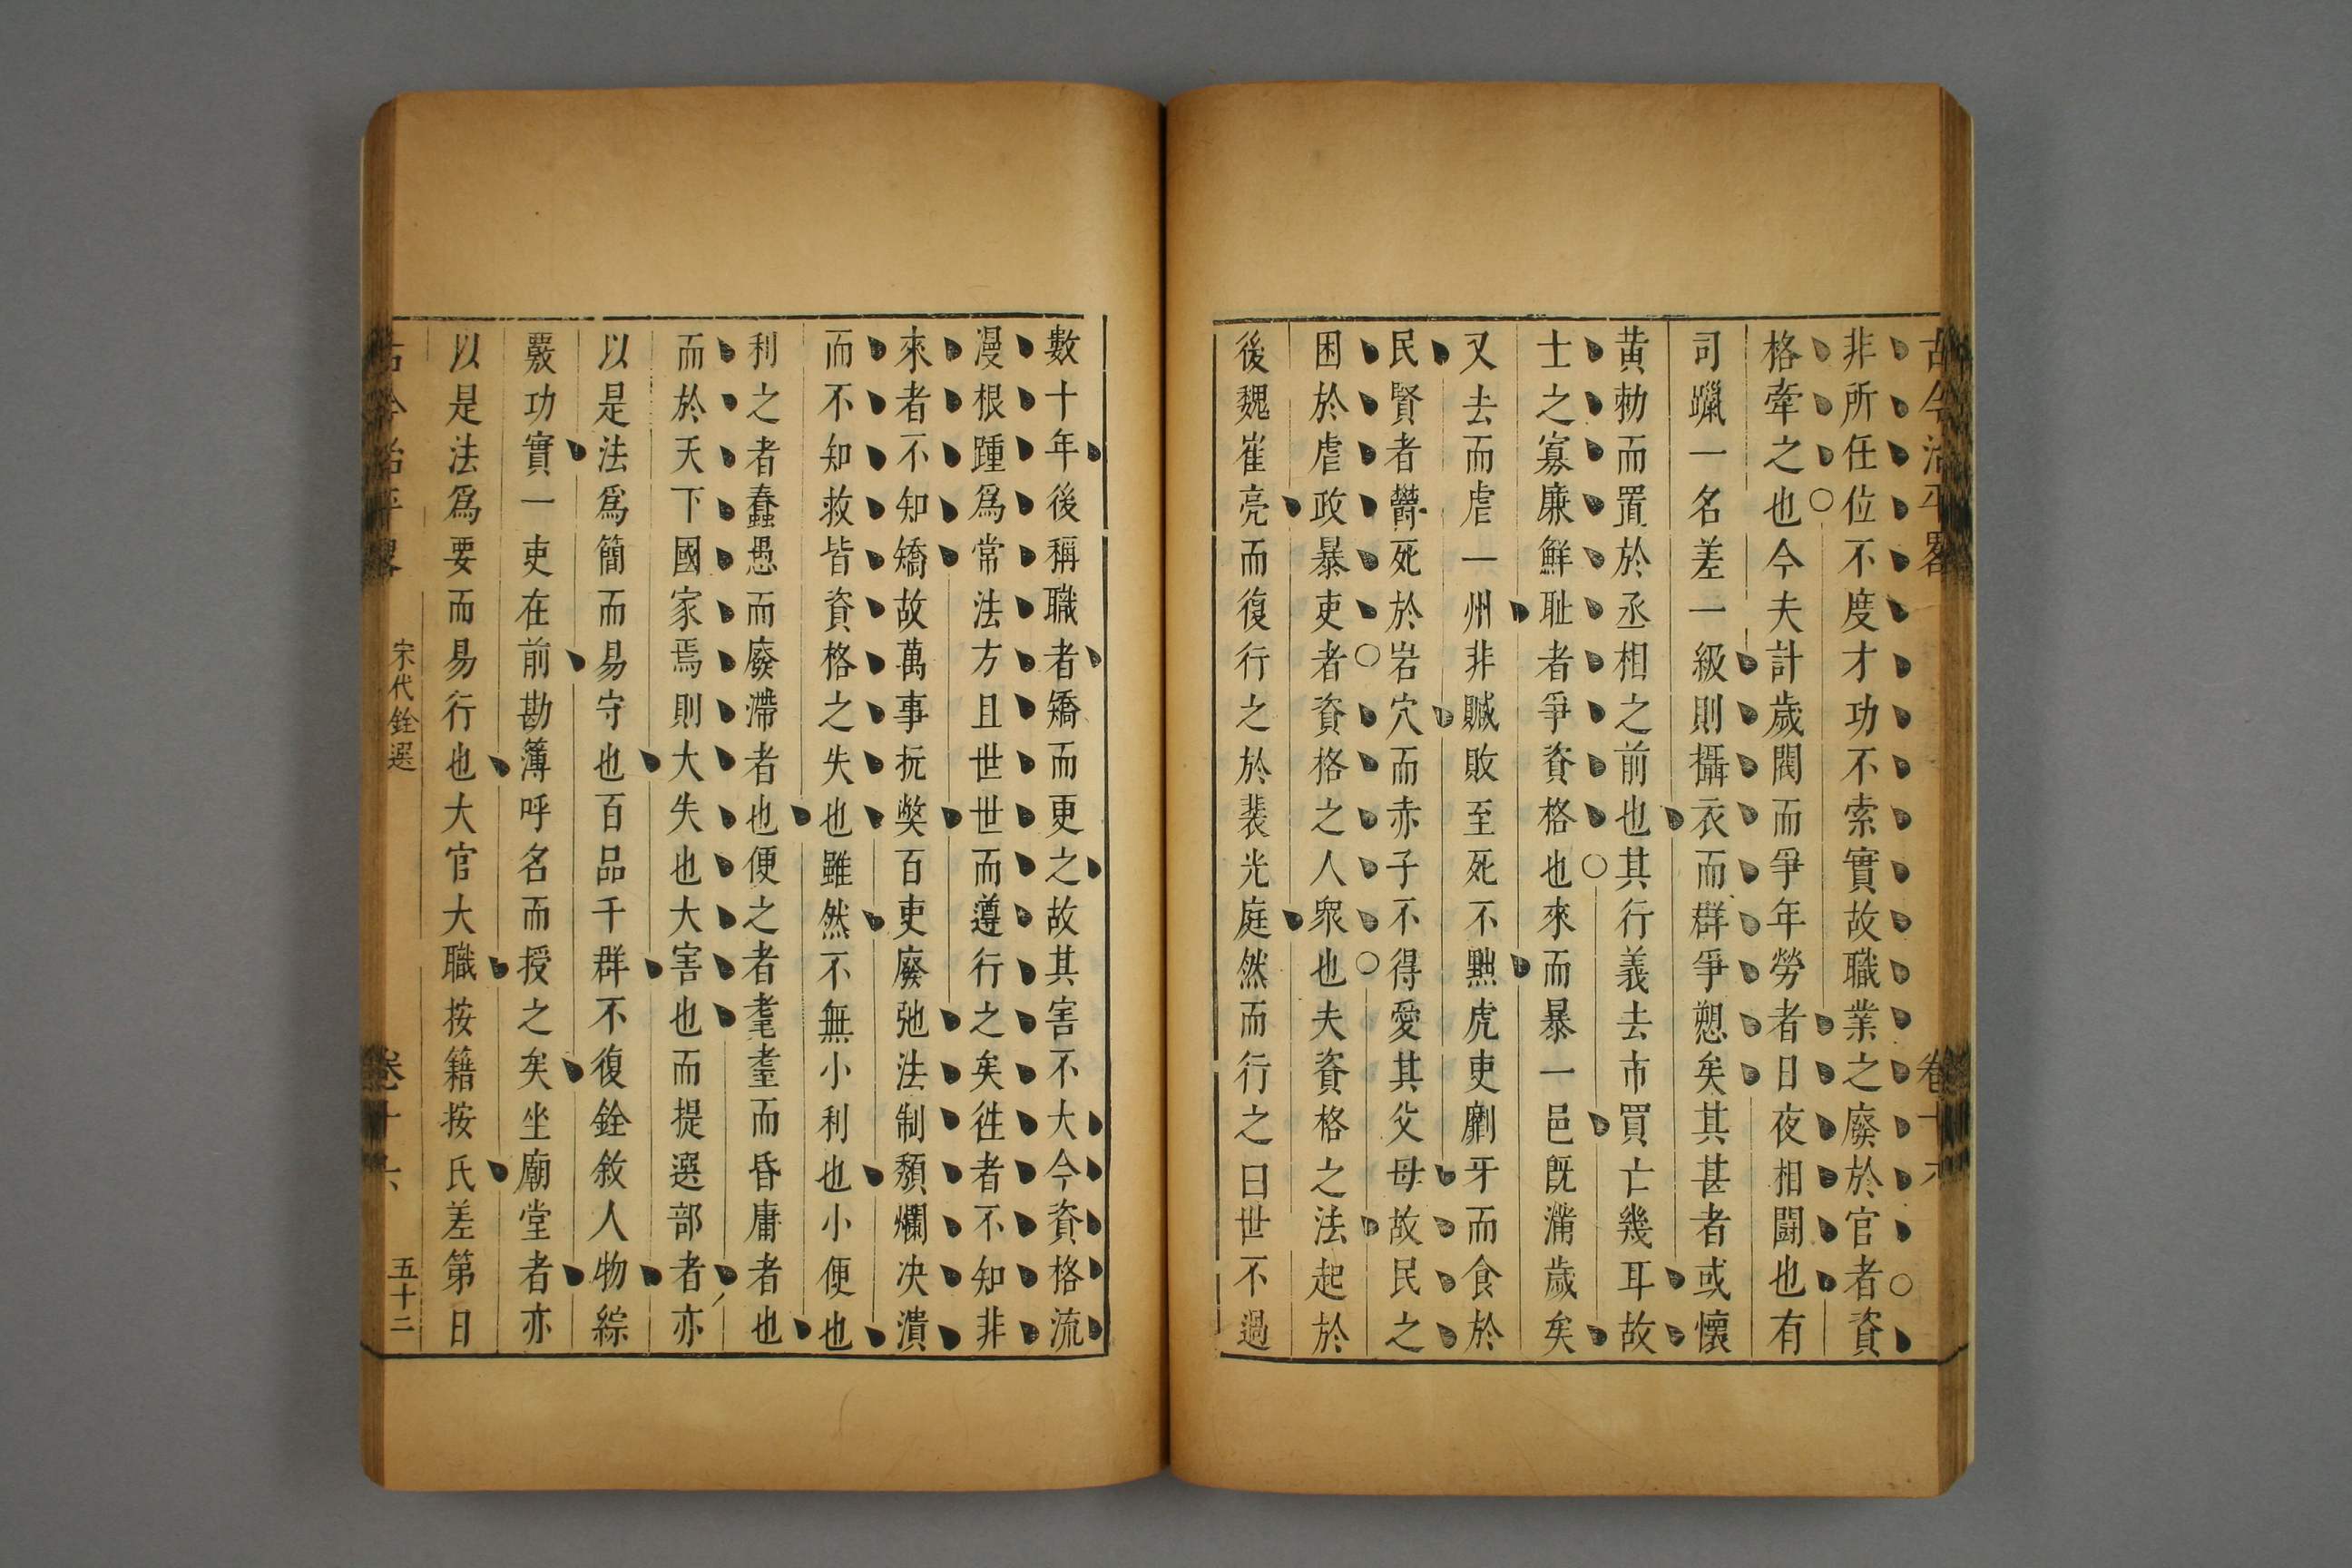 古今治平畧 卷十六
非所任位不度才功不索實故職業之廢於官者資
格牽之也今夫計歲閥而爭年勞者日夜相鬬也有
司躐一名差一級則攝衣而群爭愬矣其甚者或懷
黃勑而置於丞相之前也其行義去市買亡幾耳故
士之寡廉鮮耻者爭資格也來而暴一邑既滿歲矣
又去而虐一州非贓敗至死不黜虎吏劘牙而食於
民賢者欝死於岩穴而赤子不得愛其父母故民之
困於虐政暴吏者資格之人衆也夫資格之法起於
後魏崔亮而復行之於裴光庭然而行之曰世不過
數十年後稱職者矯而更之故其害不大今資格流
漫根踵爲常法方且世世而遵行之矣徃者不知非
來者不知矯故萬事抏獘百吏廢弛法制頽爛决潰
而不知救皆資格之失也雖然不無小利也小便也
利之者蠢愚而廢滯者也便之者耄耋而昏庸者也
而於天下國家焉則大失也大害也而提選部者亦
以是法爲簡而易守也百品千群不復銓敘人物綜
覈功實一吏在前勘簿呼名而授之矣坐廟堂者亦
以是法爲要而易行也大官大職按籍按氏差第日
古今治平畧 宋代銓選 卷十六 五十二